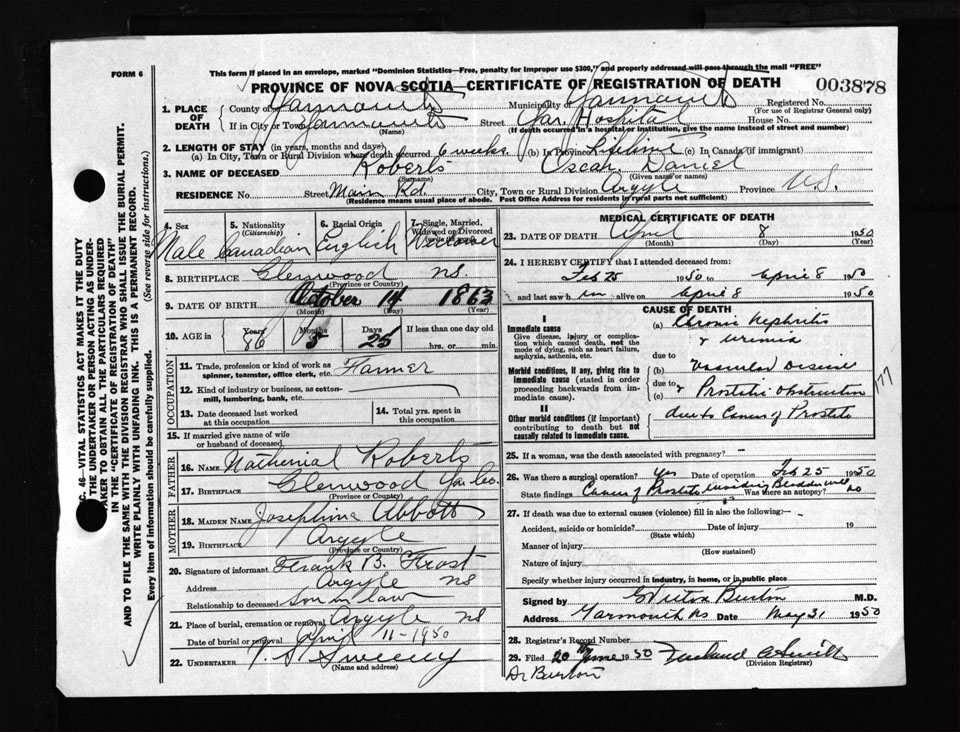 FORM 6
This form if placed in an envelope, marked "Dominion Statistics—Free, penalty for improper use $300," and properly addressed will pass through the mail "FREE"
PROVINCE OF NOVA SCOTIA—CERTIFICATE OF REGISTRATION OF DEATH
003878
1. PLACE OF DEATH
County of Yarmouth Municipality of Yarmouth Registered No.
(For use of Registrar General only)
If in City or Town Yarmouth Street Yar. Hospital House No.
(Name) (If death occurred in a hospital or institution, give the name instead of street and number)
2. LENGTH OF STAY (in years, months and days)
(a) In City, Town or Rural Division where death occurred 6 weeks (b) In Province Lifetime (c) In Canada (if immigrant)
3. NAME OF DECEASED Roberts Oscar Daniel
(Surname) (Given name or names)
RESIDENCE No. Street Main Rd. City, Town or Rural Division Argyle Province N.S.
(Residence means usual place of abode. Post Office Address for residents in rural parts not sufficient)
4. Sex Male
5. Nationality (Citizenship) Canadian
6. Racial Origin English
7. Single, Married, Widowed or Divorced Widower
8. BIRTHPLACE Glenwood NS.
(Province or Country)
9. DATE OF BIRTH October 14 1863
(Month) (Day) (Year)
10. AGE in Years 86 Months 5 Days 25 If less than one day old
hrs. or min.
OCCUPATION
11. Trade, profession or kind of work as Farmer
spinner, teamster, office clerk, etc.
12. Kind of industry or business, as cotton-
mill, lumbering, bank, etc.
13. Date deceased last worked
at this occupation
14. Total yrs. spent in
this occupation
15. If married give name of wife
or husband of deceased
FATHER
16. Name Nathenial Roberts
17. Birthplace Glenwood Yar Co.
(Province or Country)
MOTHER
18. MAIDEN NAME Josephine Abbott
19. Birthplace Argyle
(Province or Country)
20. Signature of informant Frank B. Frost
Address Argyle NS
Relationship to deceased son in law
21. Place of burial, cremation or removal Argyle NS
Date of burial or removal April 11-1950
22. UNDERTAKER V. S. Sweeny
(Name and address)
MEDICAL CERTIFICATE OF DEATH
23. DATE OF DEATH April 8 1950
(Month) (Day) (Year)
24. I HEREBY CERTIFY that I attended deceased from:
Feb 25 1950 to April 8 1950
and last saw him alive on April 8 1950
CAUSE OF DEATH
I
Immediate cause
Give disease, injury or complication which caused death, not the mode of dying, such as heart failure, asphyxia, asthenia, etc.
(a) Chronic Nephritis
& uremia
Morbid conditions, if any, giving rise to immediate cause (stated in order proceeding backwards from immediate cause).
due to
(b) Vascular Disease
due to
(c) & Prostatic obstruction
177
II
Other morbid conditions (if important) contributing to death but not causally related to immediate cause.
due to Cancer of Prostate
25. If a woman, was the death associated with pregnancy? —
26. Was there a surgical operation? Yes Date of operation Feb 25 1950
State findings Cancer of Prostate invading Bladder wall Was there an autopsy? no
27. If death was due to external causes (violence) fill in also the following: —
Accident, suicide or homicide? Date of injury 19
(State which)
Manner of injury
(How sustained)
Nature of injury
Specify whether injury occurred in industry, in home, or in public place
Signed by Burton M.D.
Address Yarmouth NS Date May 31 1950
28. Registrar's Record Number
29. Filed 20th June 1950
(Division Registrar)
Dr Burton
C. 46—VITAL STATISTICS ACT MAKES IT THE DUTY
OF THE UNDERTAKER OR PERSON ACTING AS UNDER-
TAKER TO OBTAIN ALL THE PARTICULARS REQUIRED
IN THE "CERTIFICATE OF REGISTRATION OF DEATH"
AND TO FILE THE SAME WITH THE DIVISION REGISTRAR WHO SHALL ISSUE THE BURIAL PERMIT.
WRITE PLAINLY WITH UNFADING INK. THIS IS A PERMANENT RECORD.
Every item of information should be carefully supplied. (See reverse side for instructions.)